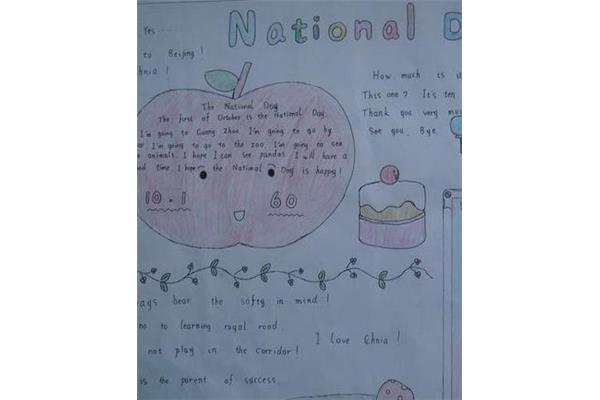 National D
Yes
to Beijing!
hnia!
How much is it
This one? It's ten
Thank you very mu
See you. Bye
The National Day
The first of October is the National Day.
I'm going to Guang Zhou. I'm going to go by
ar. I'm going to go to the zoo. I'm going to see
animals. I hope I can see pandas. I will have a
od time. I hope the National Day is happy!
10.1
60
ays bear the softy in mind!
no to learning rogal road.
I love Chnia!
not play in the corridor!
is the parent of success.